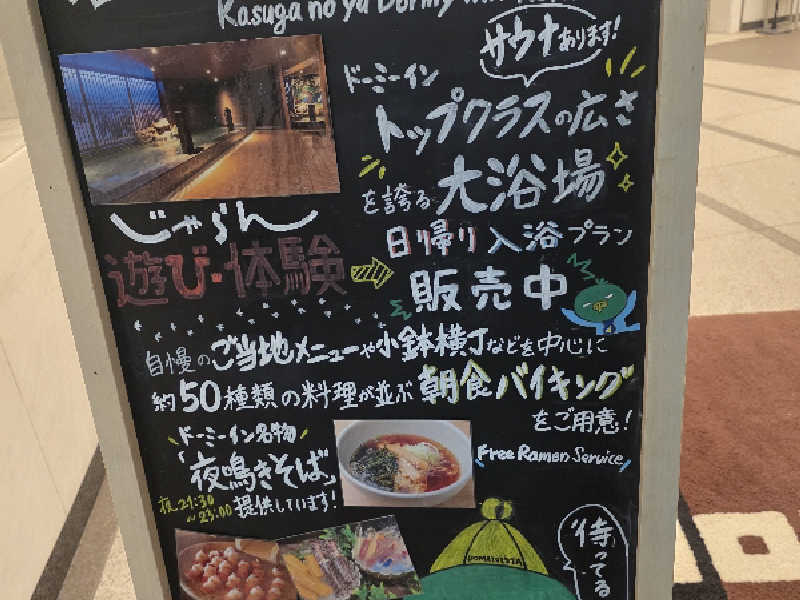 Kasuga no yu Dormy
サウナあります!
ドーミーイン
トップクラスの広さ
を誇る大浴場
じゃらん
遊び・体験
日帰り入浴プラン
販売中
自慢のご当地メニューや小鉢横丁などを中心に
約50種類の料理が並ぶ朝食バイキング
をご用意!
ドーミーイン名物
「夜鳴きそば」
夜21:30
~23:00提供しています!
Free Ramen Service
待ってる